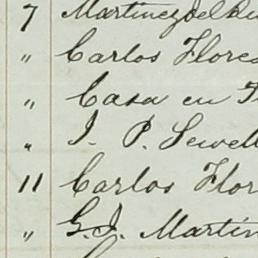 7 Martinez del Ri
" Carlos Flores
" Casa en T
" I. P. Sewell
11 Carlos Flor
" G. I. Martin